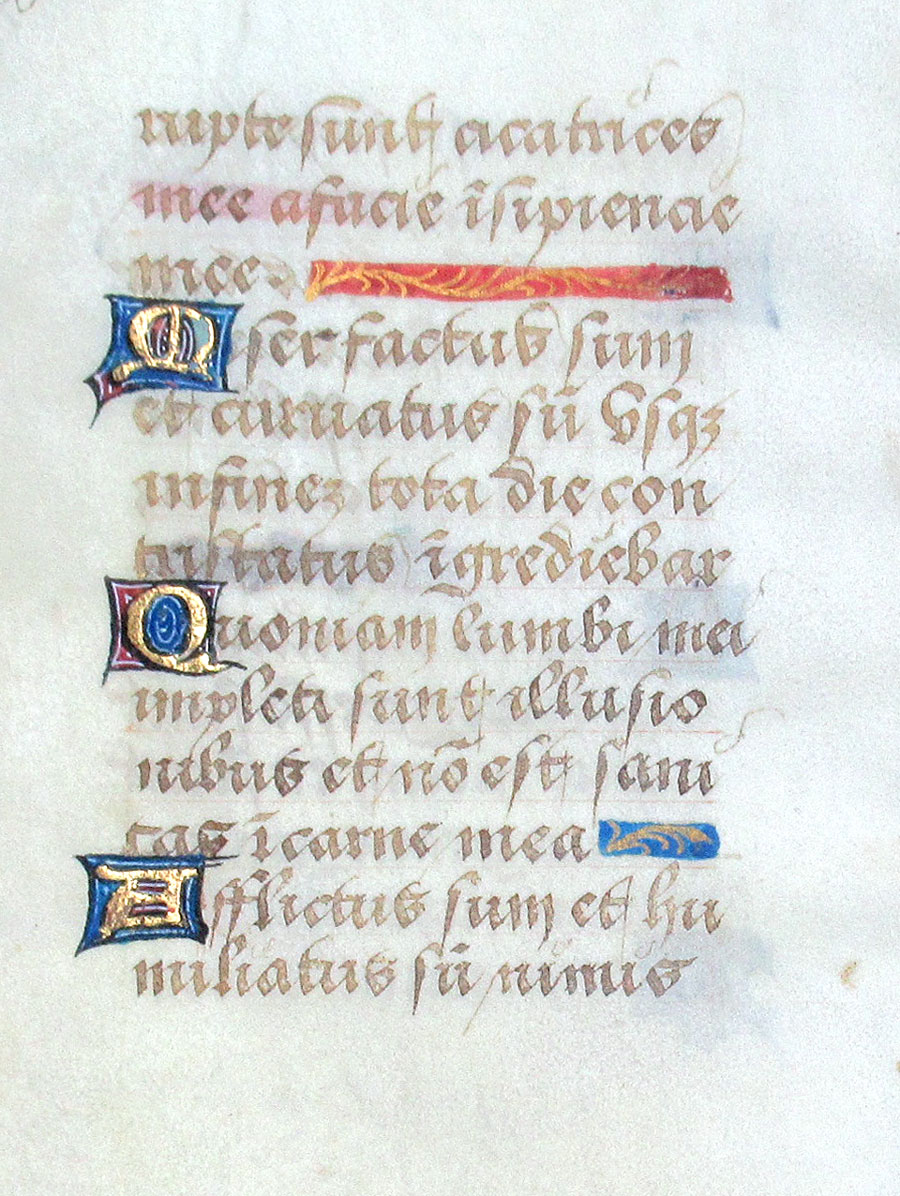 rupte sunt acatrices
mee afacie īsipiencie
mee
Miser factus sum
et curuatus sū vsqꝫ
infineꝫ tota die con
tristatus īgrediebar
Quoniam lumbi mei
impleti sunt illusio
nibus et nō est sani
tas īcarne mea
Afflictus sum et hu
miliatus sū nimis